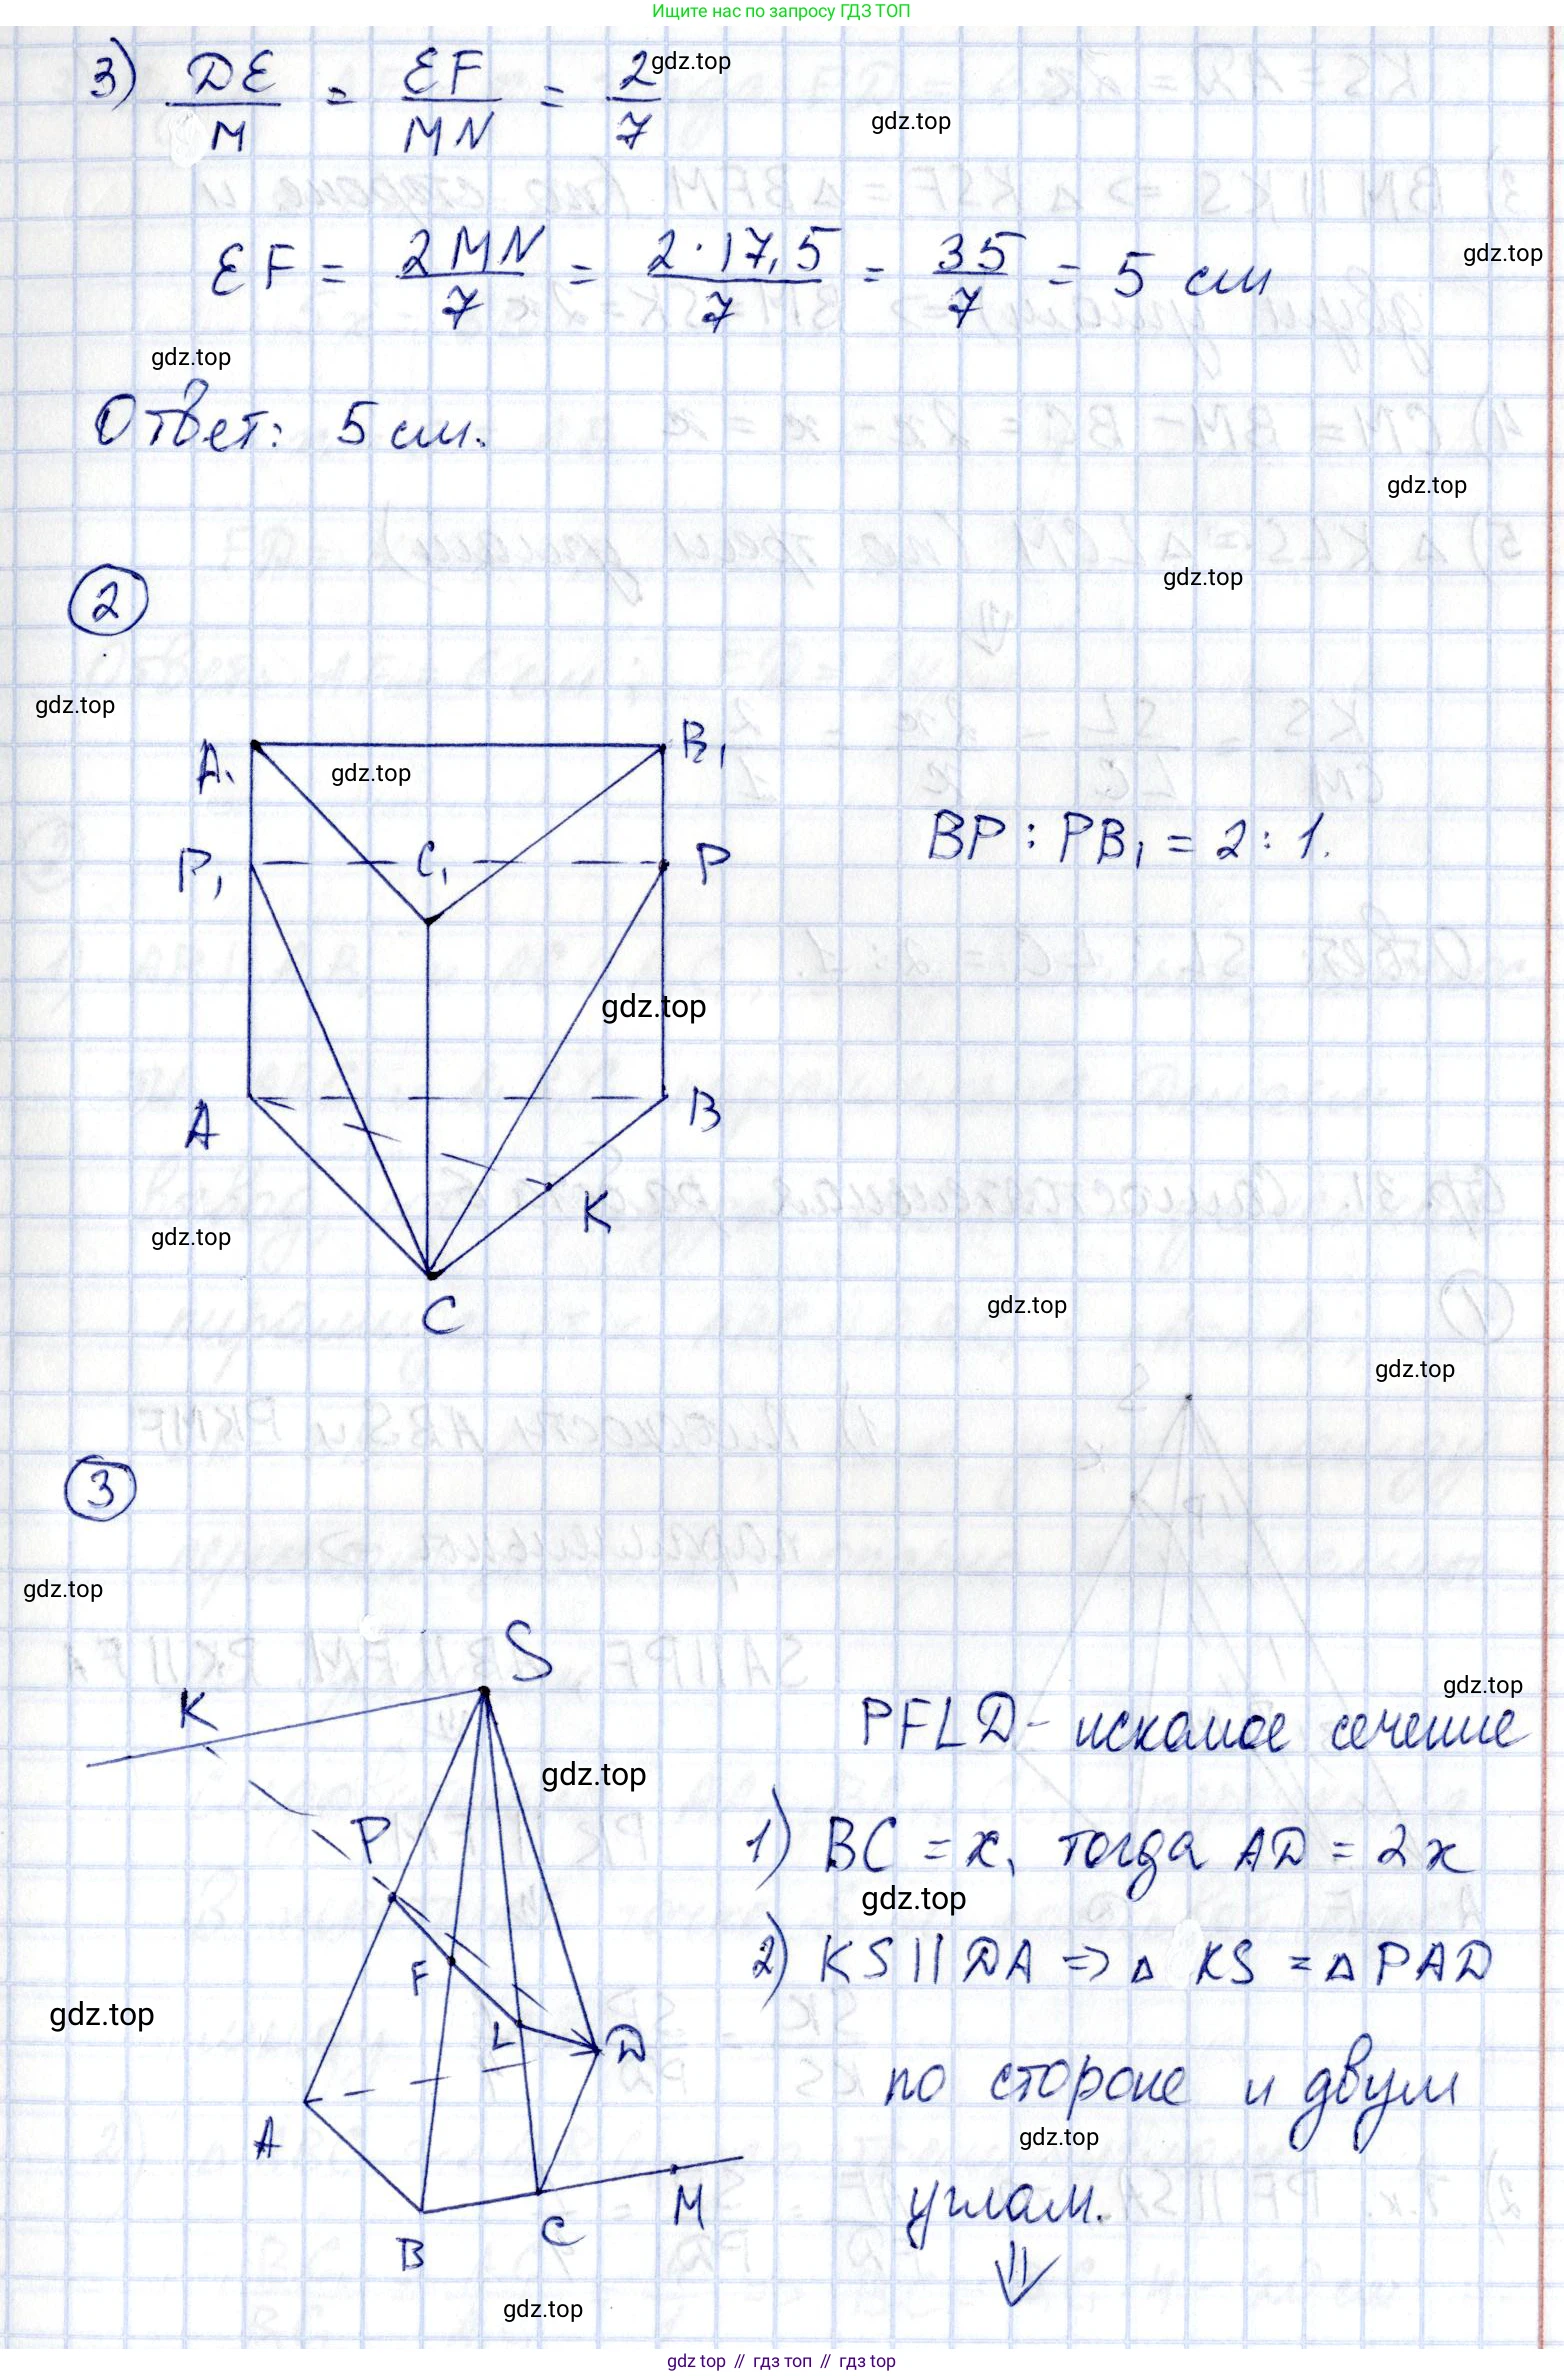 Ищите нас по запросу ГДЗ ТОП
3) DE/M = EF/MN = 2/7
gdz.top
gdz.top
EF = 2MN/7 = 2·17,5/7 = 35/7 = 5 см
gdz.top
gdz.top
Ответ: 5 см.
gdz.top
gdz.top
2
gdz.top
A1
B1
gdz.top
P1
C1
P
BP : PB1 = 2 : 1.
gdz.top
A
B
K
gdz.top
C
gdz.top
gdz.top
3
gdz.top
S
K
gdz.top
PFLD - искомое сечение
gdz.top
P
1) BC = x, тогда AD = 2x
gdz.top
F
2) KS || DA => △ KS = △ PAD
gdz.top
L
D
по стороне и двум
A
gdz.top
M
углам.
C
B
⇓
gdz.top
gdz top // гдз топ // гдз top